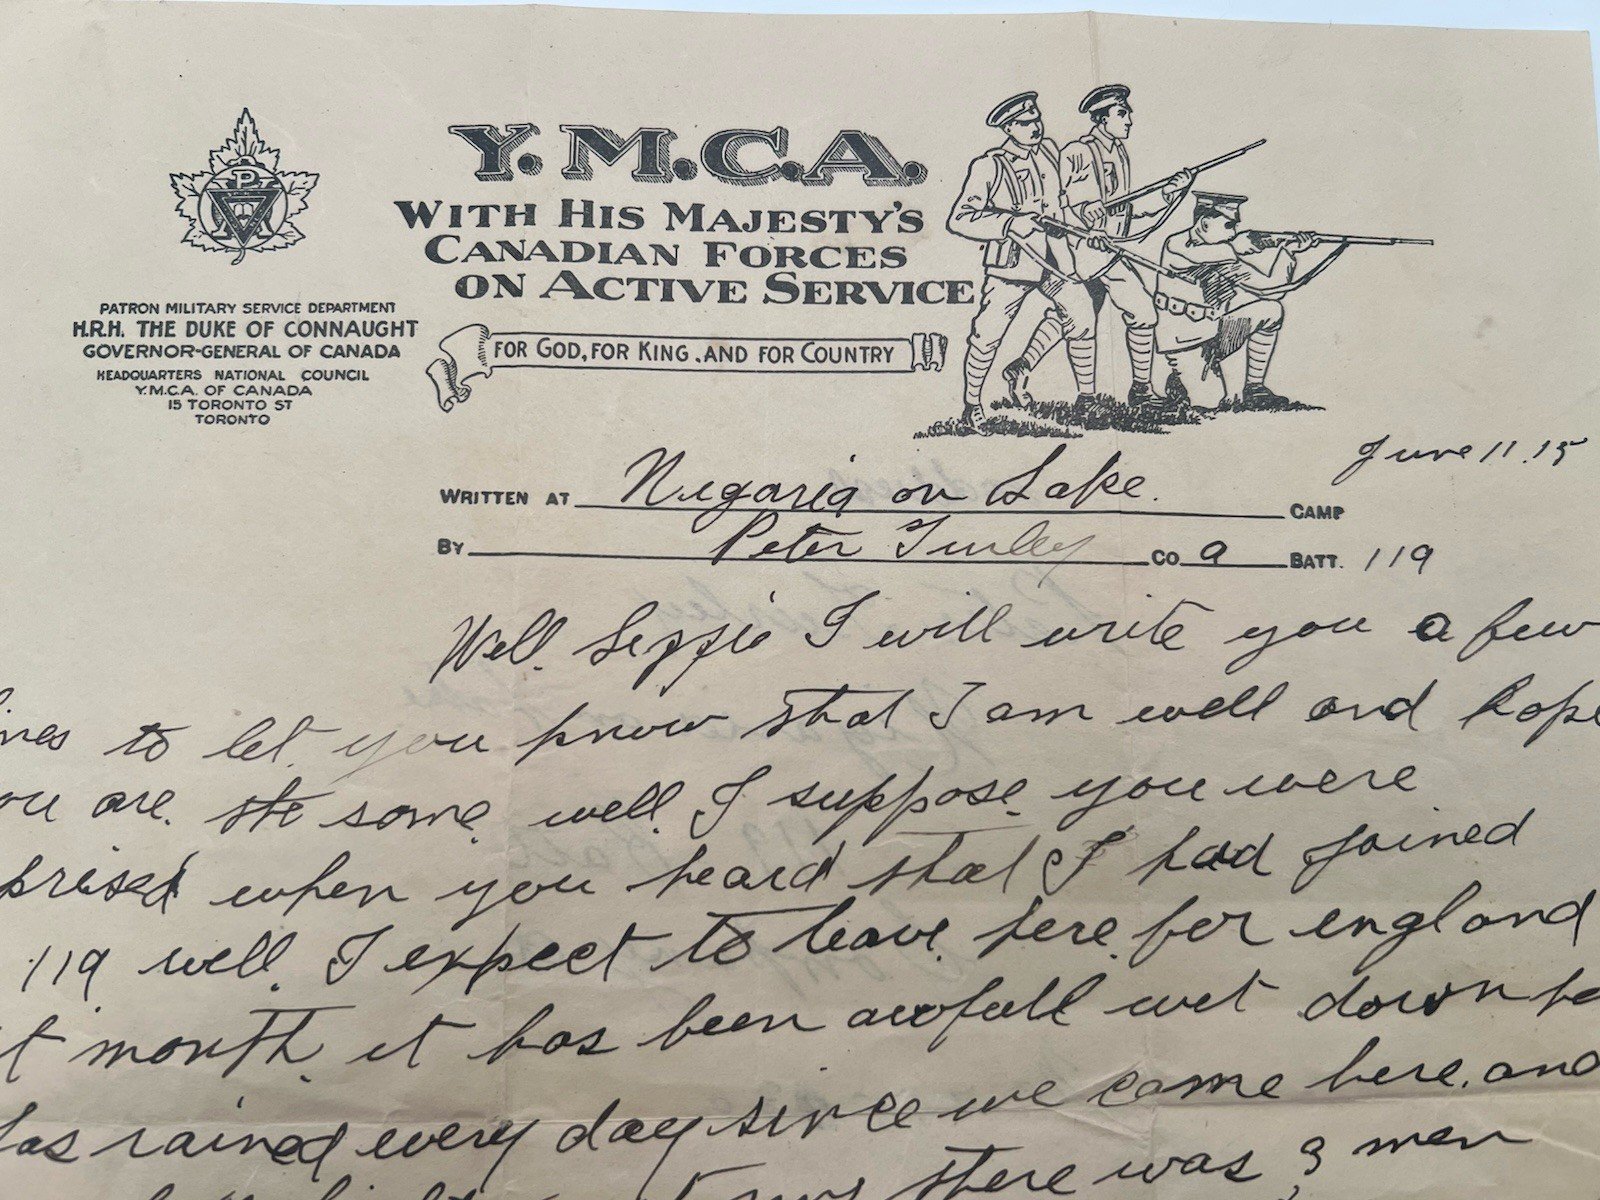 Y.M.C.A.
WITH HIS MAJESTY'S
CANADIAN FORCES
ON ACTIVE SERVICE
FOR GOD, FOR KING, AND FOR COUNTRY
PATRON MILITARY SERVICE DEPARTMENT
H.R.H. THE DUKE OF CONNAUGHT
GOVERNOR-GENERAL OF CANADA
HEADQUARTERS NATIONAL COUNCIL
Y.M.C.A. OF CANADA
15 TORONTO ST
TORONTO
June 11.15
WRITTEN AT Nigaria on Lake. CAMP
BY Peter Turley CO a BATT. 119
Well. I will write you a few
ines to let you know that I am well and hope
ou are. the same. well. I suppose you were
prised when you heard that I had joined
119 well. I expect to leave here for england
t month. it has been awfull wet down he
has rained every day since we came here. and
there was 3 men